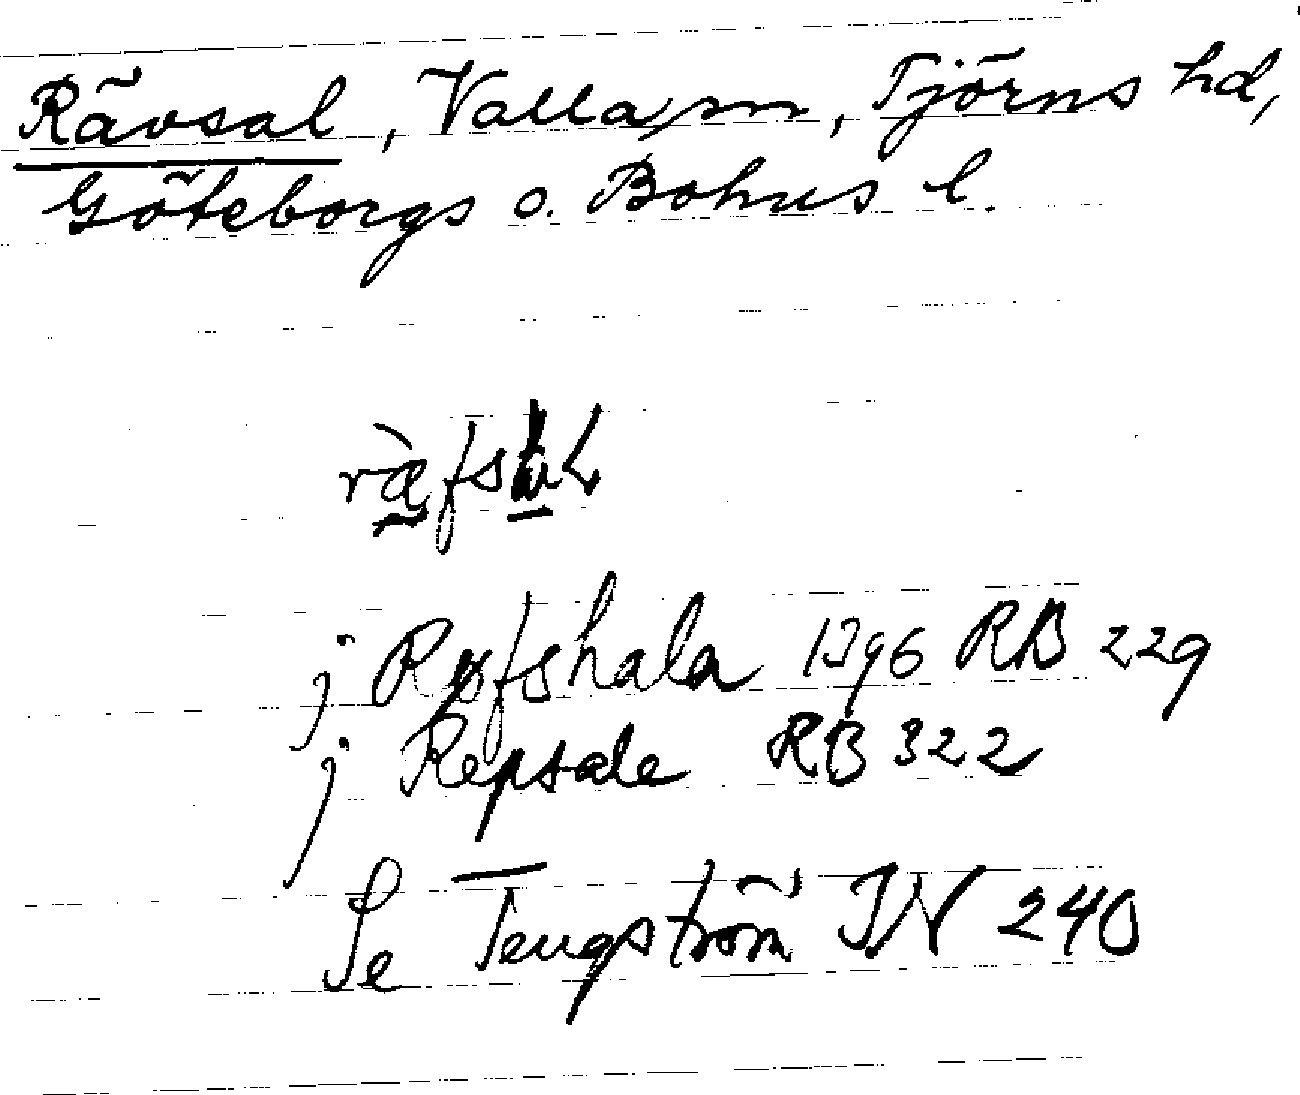 Rävsal, Valla sn, Tjörns hd,
Göteborgs o. Bohus l.
j Ræfshala 1396 RB 229
j Repsale RB 322
Se Tengström TN 240